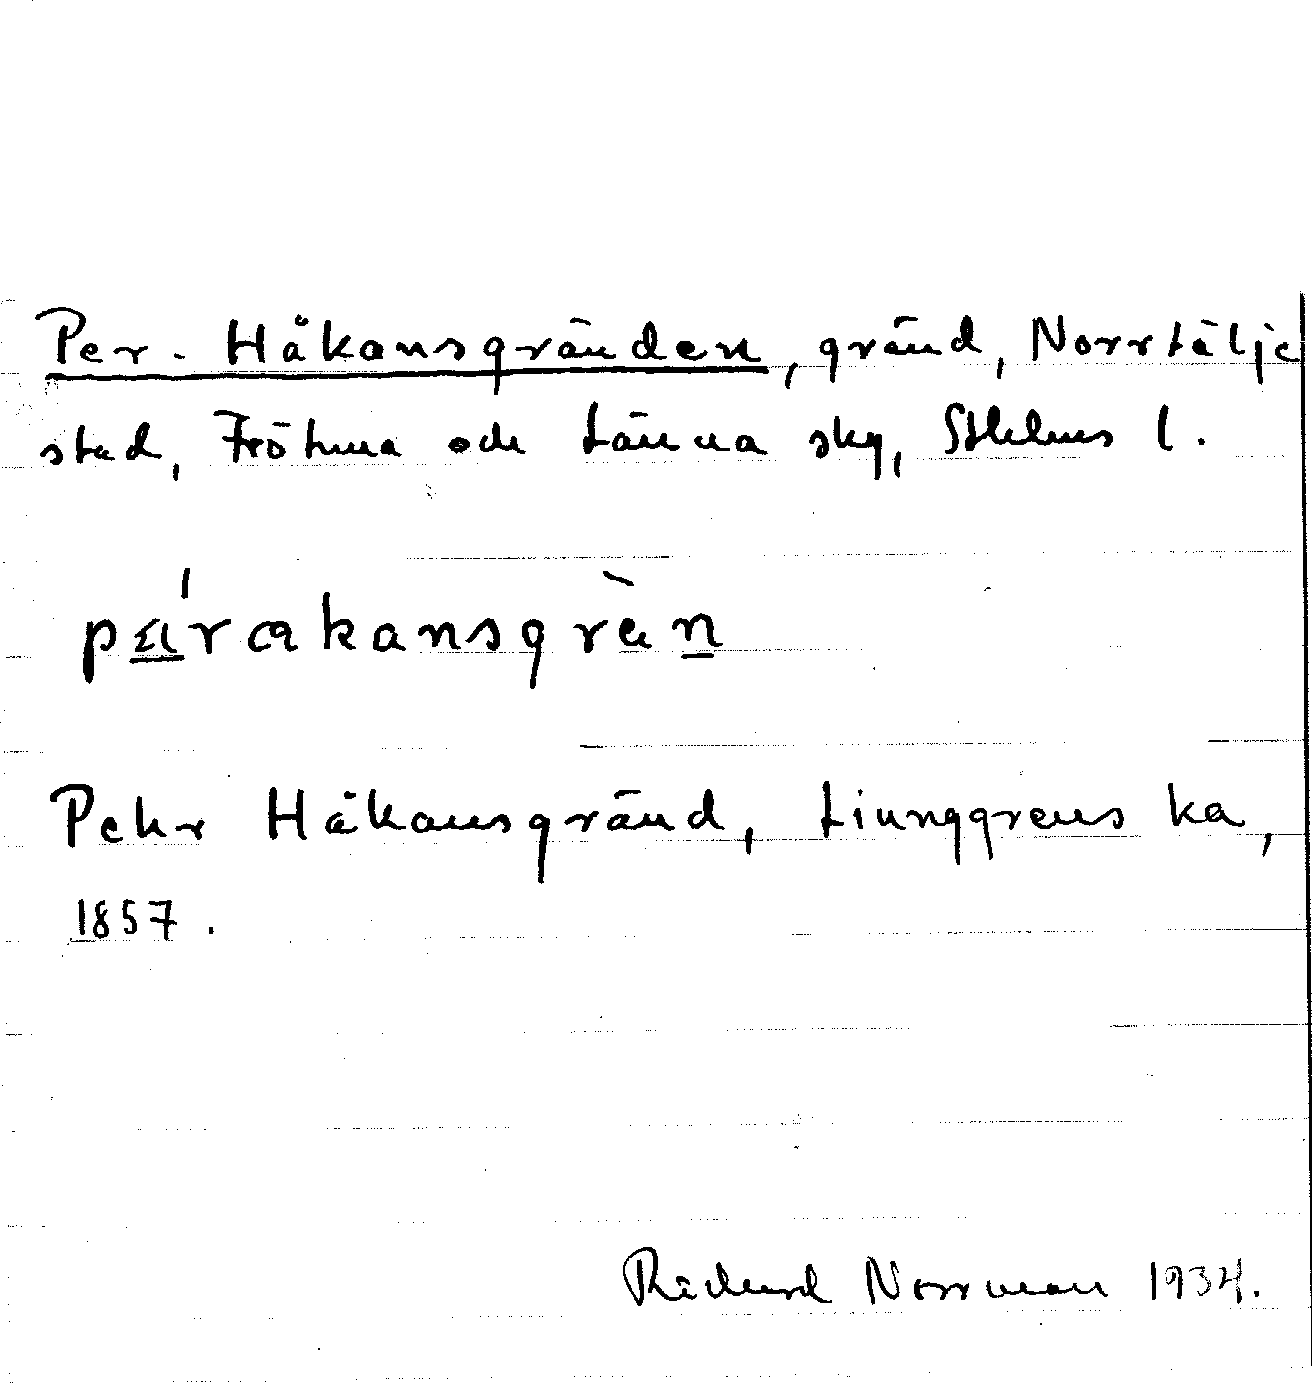 Per-Håkansgränden, gränd, Norrtälje
stad, Frötuna och Länna skg, Sthlms l.
pä́rakansgrä̀n
Pehr Håkansgränd, Liunggrens ka,
1857.
Richard Norrman 1934.